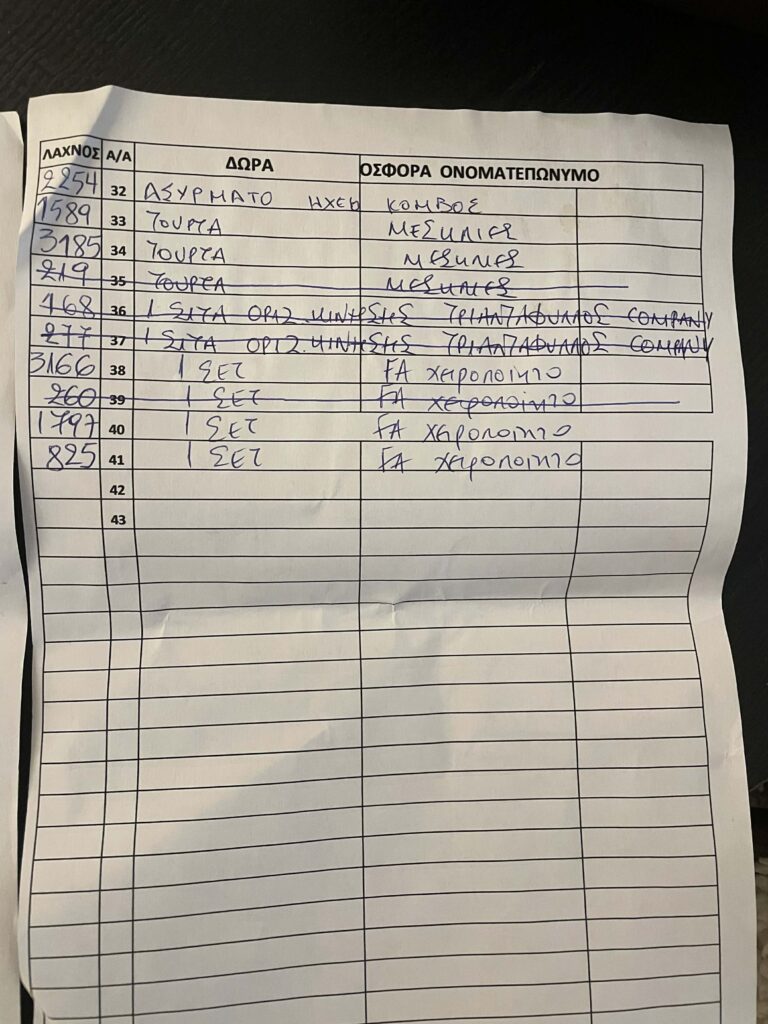 ΛΑΧΝΟΣ Α/Α ΔΩΡΑ ΟΣΦΟΡΑ ΟΝΟΜΑΤΕΠΩΝΥΜΟ
2254 32 ΑΣΥΡΜΑΤΟ ΗΧΕΙΟ ΚΟΜΒΟΣ
1589 33 ΤΟΥΡΤΑ ΜΕΣΚΛΙΕΣ
3185 34 ΤΟΥΡΤΑ ΜΕΣΚΛΙΕΣ
219 35 ΤΟΥΡΤΑ ΜΕΣΚΛΙΕΣ
168 36 1 ΣΙΤΑ ΟΡΙΖ. ΚΙΝΗΣΗΣ ΤΡΙΑΝΤΑΦΥΛΛΟΣ COMPANY
277 37 1 ΣΙΤΑ ΟΡΙΖ. ΚΙΝΗΣΗΣ ΤΡΙΑΝΤΑΦΥΛΛΟΣ COMPANY
3166 38 1 ΣΕΤ FA χειροποιητο
260 39 1 ΣΕΤ FA χειροποίητο
1797 40 1 ΣΕΤ FA χειροποιητο
825 41 1 ΣΕΤ FA χειροποιητο
42
43